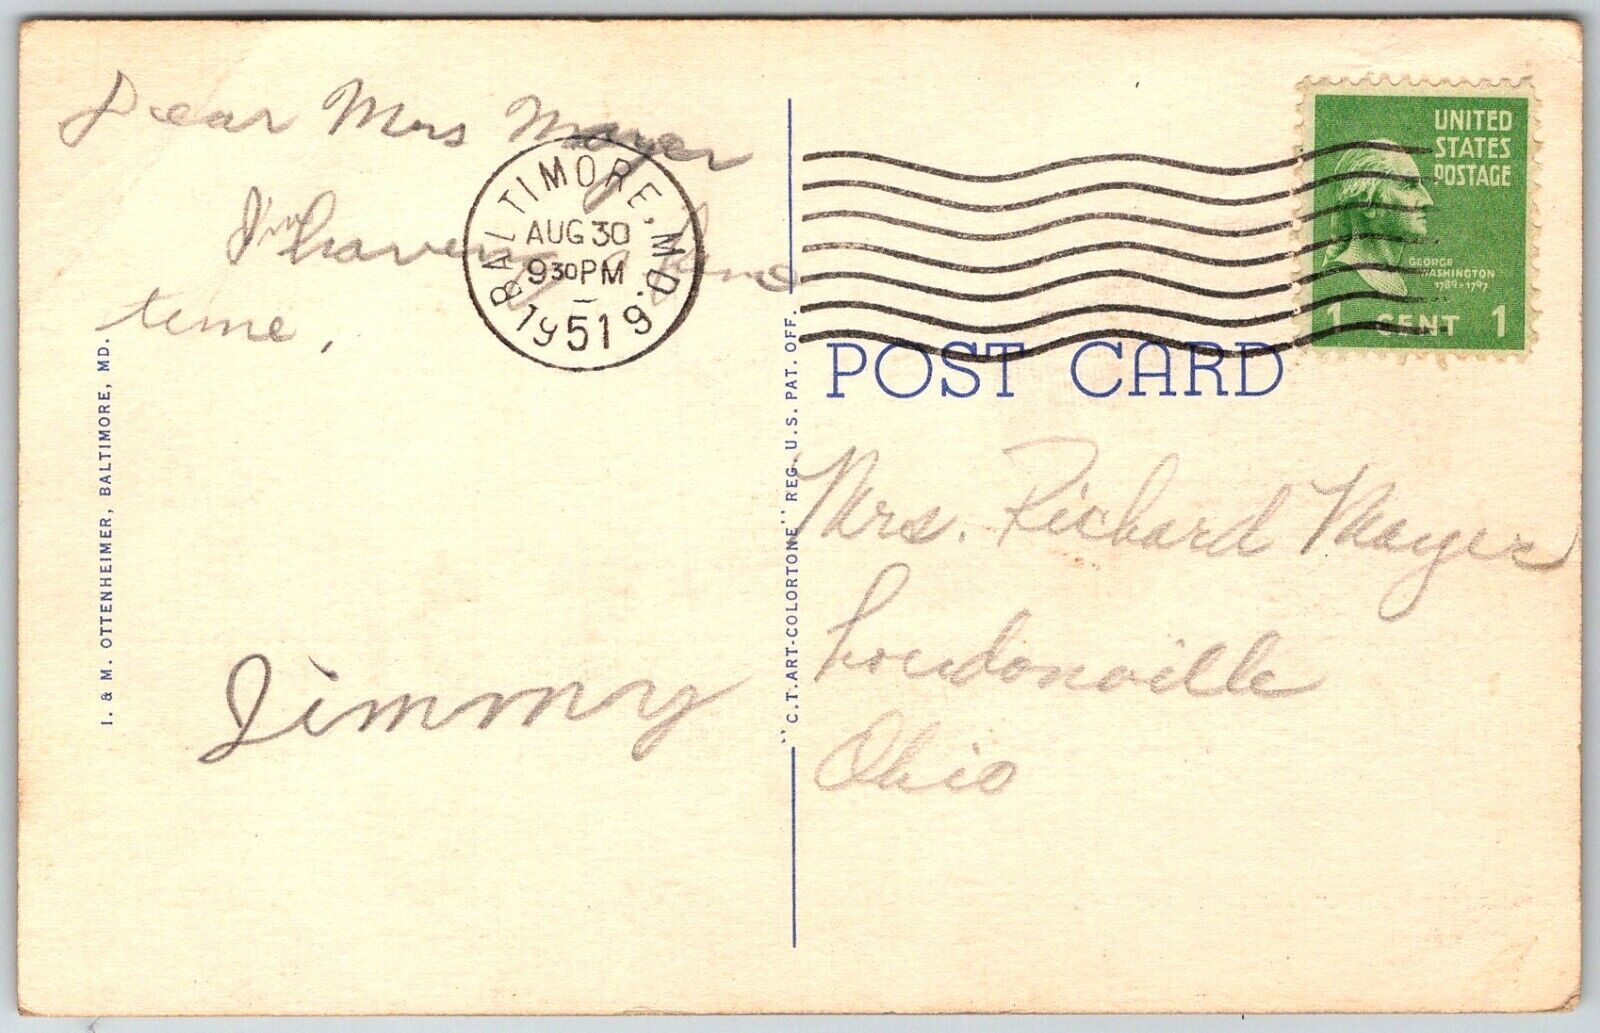 Dear Mrs Mayer
I'm having fine
time,
Jimmy
I. & M. OTTENHEIMER, BALTIMORE, MD.
BALTIMORE, MD.
AUG 30
9 30 PM
1951
9
"C.T. ART-COLORTONE" REG. U.S. PAT. OFF.
UNITED
STATES
POSTAGE
GEORGE
WASHINGTON
1789-1797
1 CENT 1
POST CARD
Mrs. Richard Mayer
Loudonville
Ohio